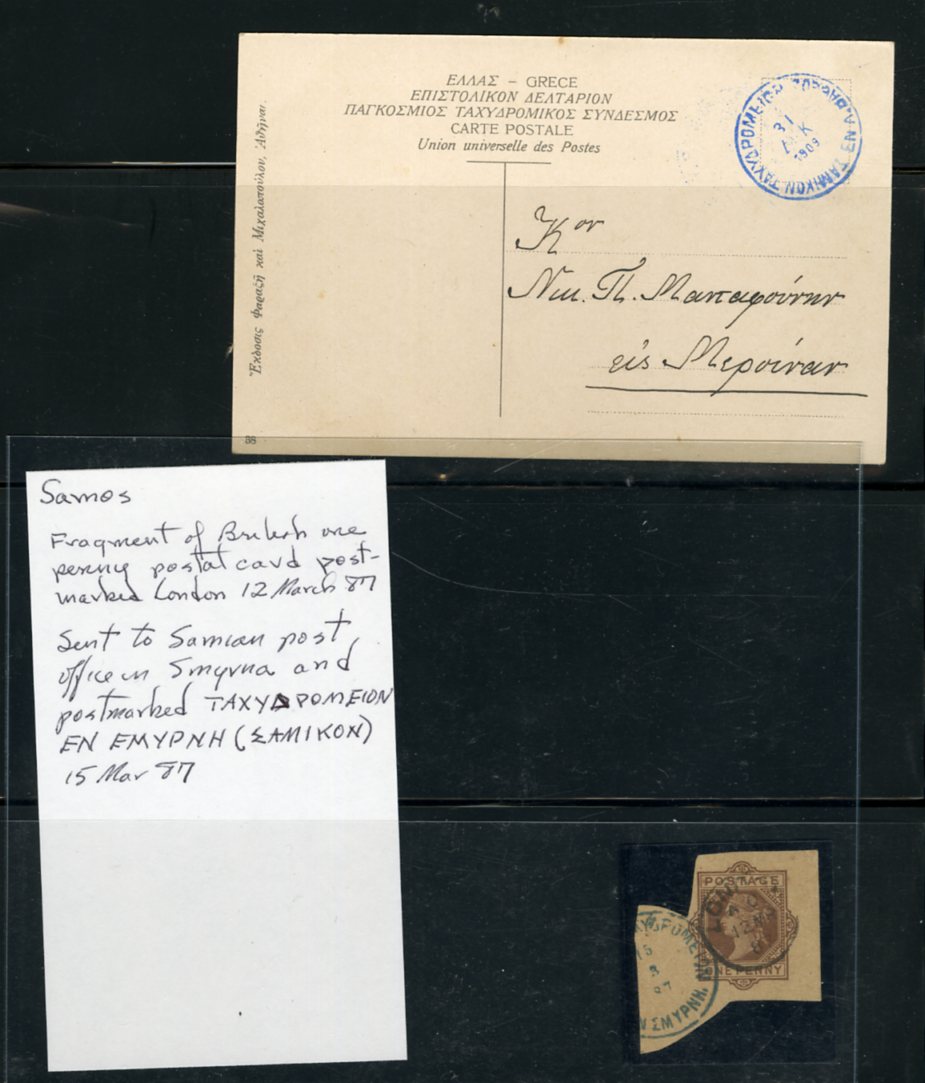 ΕΛΛΑΣ – GRECE
ΕΠΙΣΤΟΛΙΚΟΝ ΔΕΛΤΑΡΙΟΝ
ΠΑΓΚΟΣΜΙΟΣ ΤΑΧΥΔΡΟΜΙΚΟΣ ΣΥΝΔΕΣΜΟΣ
CARTE POSTALE
Union universelle des Postes
ΣΑΜΙΚΟΝ ΤΑΧΥΔΡΟΜΕΙΟΝ ΕΝ
31
ΔΕΚ
1909
Ἔκδοσις Φαραζῆ καὶ Μιχαλοπούλου, Ἀθῆναι.
Κον
Νικ. Π.
εἰς
38
Samos
Fragment of British one
penny postal card post-
marked London 12 March 87
Sent to Samian post
office in Smyrna and
postmarked ΤΑΧΥΔΡΟΜΕΙΟΝ
ΕΝ ΕΜΥΡΝΗ (ΣΑΜΙΚΟΝ)
15 Mar 87
POSTAGE
ONE PENNY
LON
A C
12 MR
87
ΥΔΡΟΜΕΙ
15
3
87
Ν ΣΜΥΡΝΗ